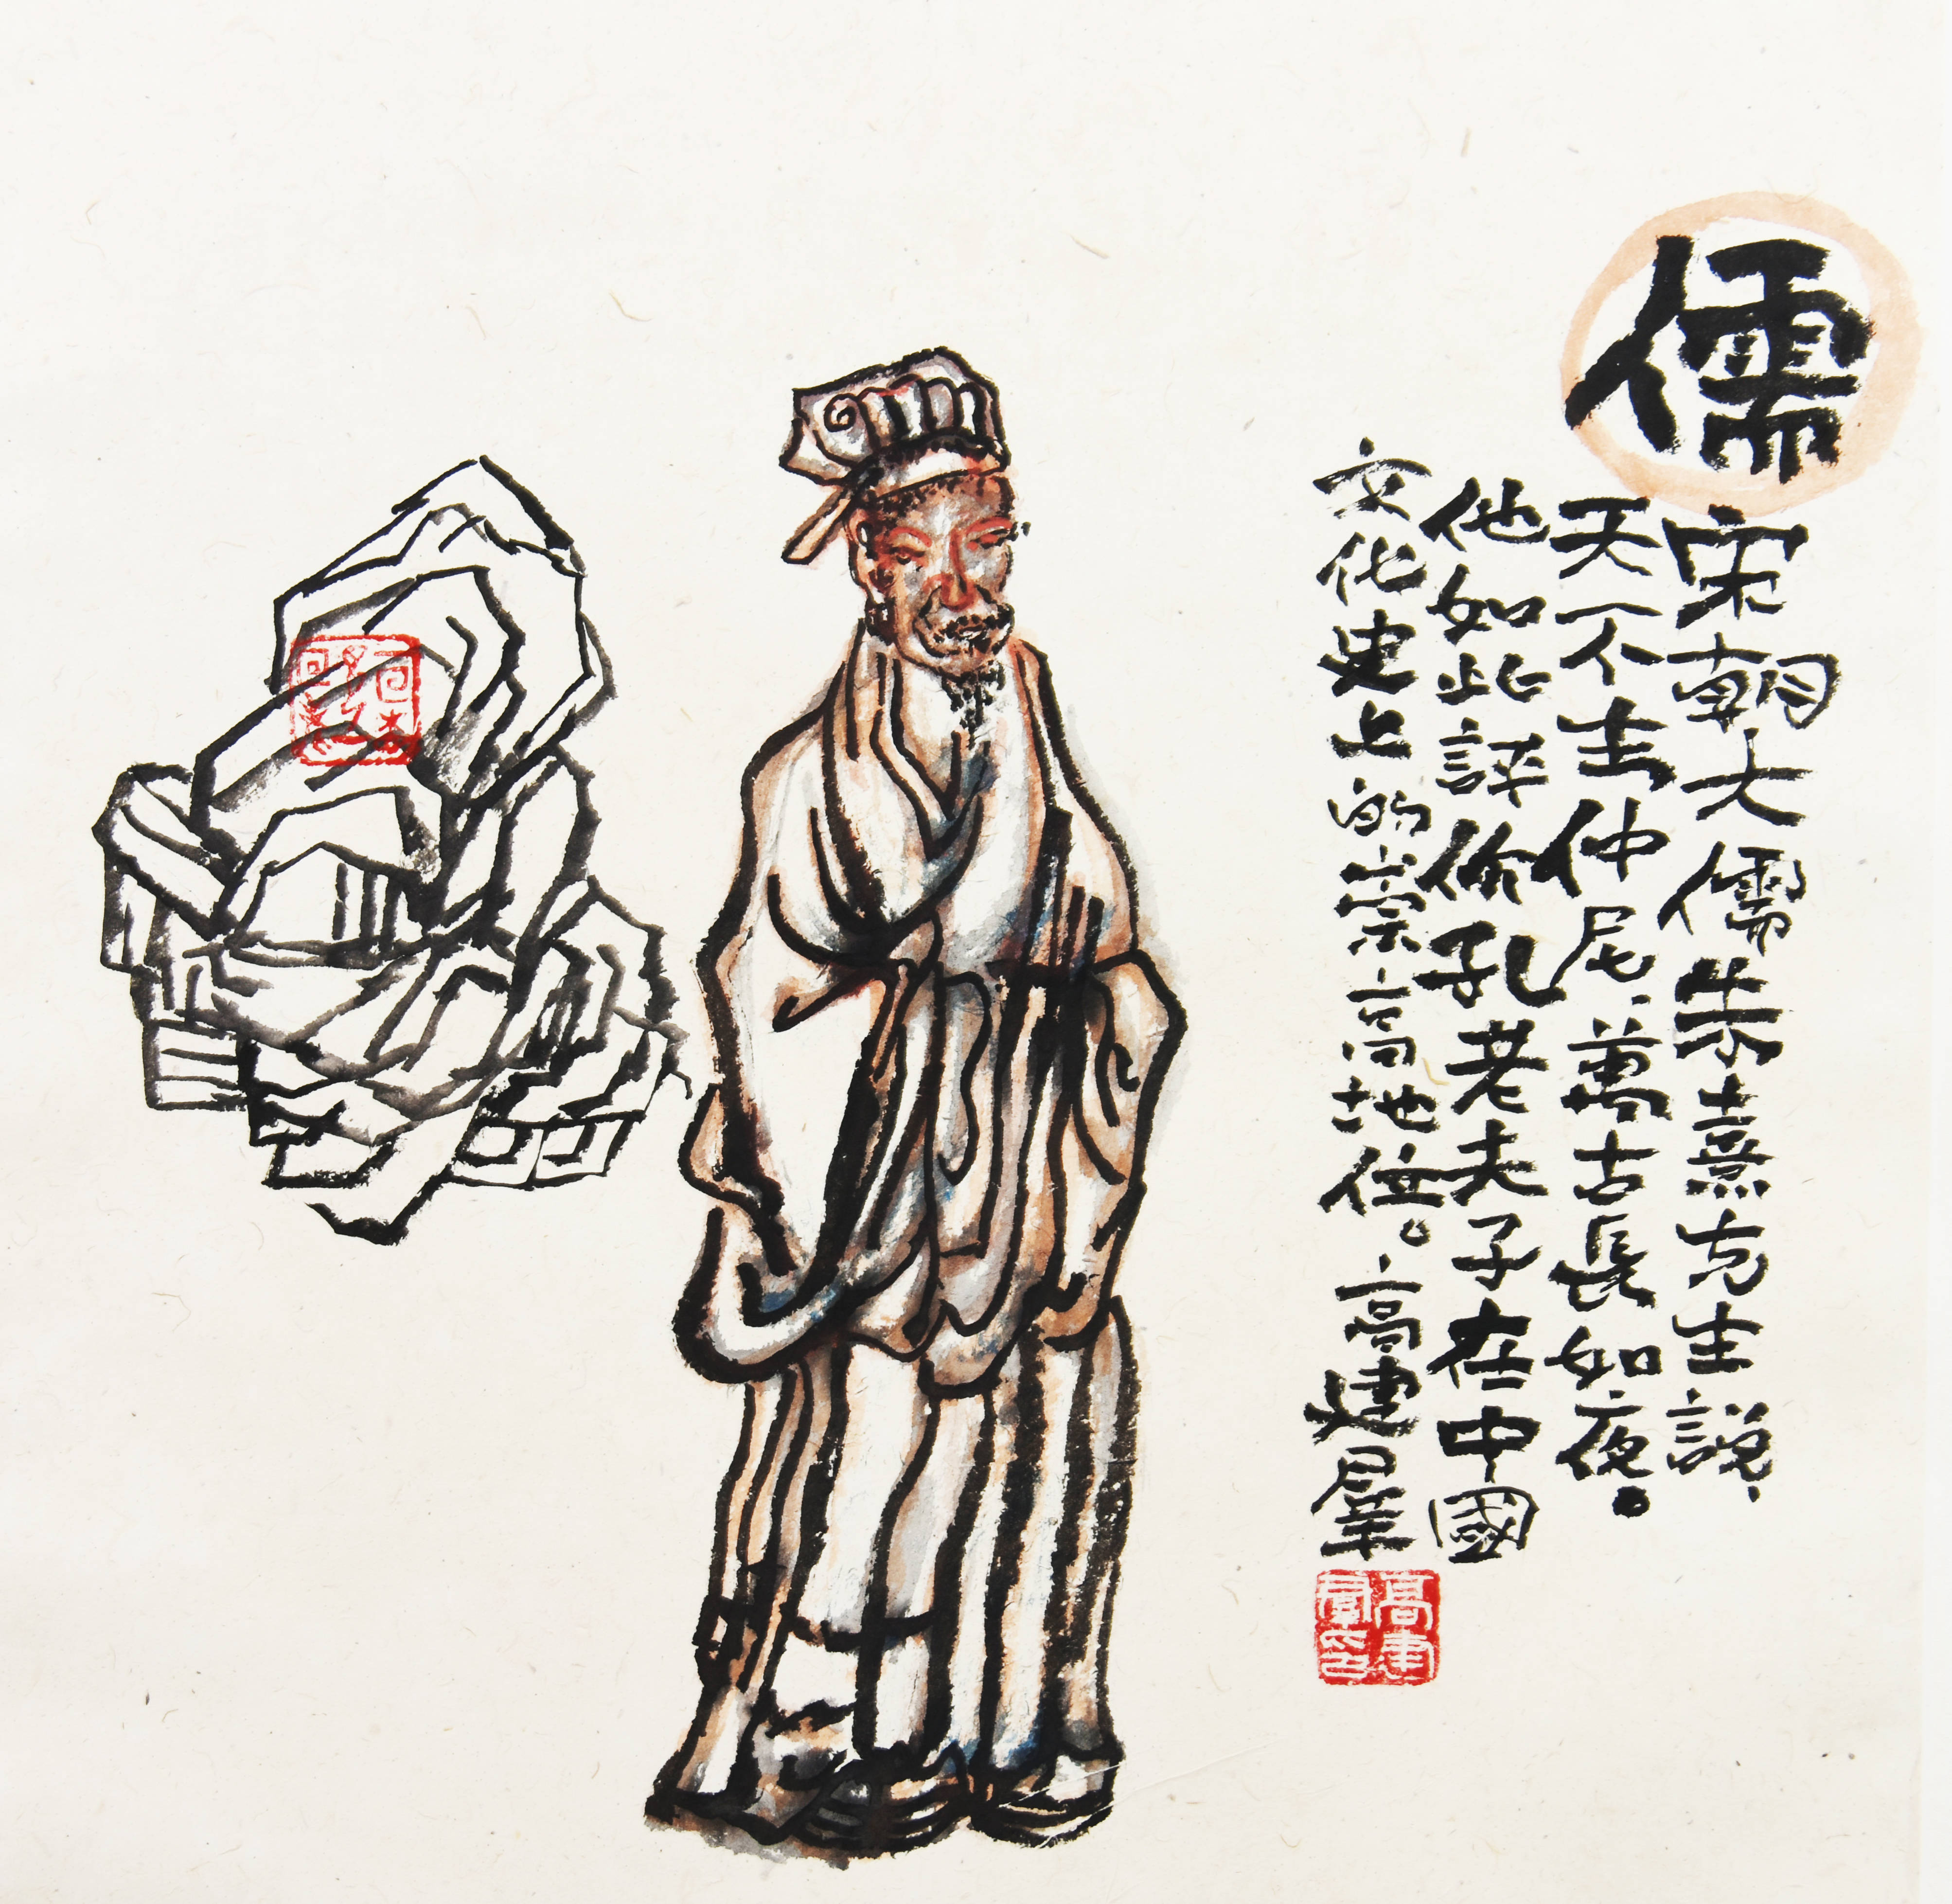 儒
宋朝大儒朱熹先生說、
天不生仲尼、萬古長如夜。
他如此評孔老夫子在中國
文化史上的崇高地位。高建群
高建群印